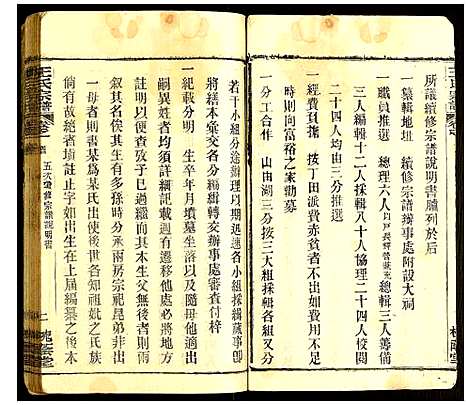 王氏宗譜
所議續修宗譜說明書臚列於后
一纂輯地址　續修宗譜辦事處附設大祠
一職員推選　總理六人　總輯三人籌備
三人編輯十二人採輯八十人協理二十四人校閱
二十四人均由三分推選
一經費計規　按丁田派費赤貧者不出如若用不足
時則向富裕之家勸募
一分工合作　山由湖三分按三大組採輯各組又分
王氏宗譜
五次續修宗譜說明書
若干小組分途辦理以期迅速各小組採緝蕆事卽
將繕本彙交各分編緝轉交辦事處審查付梓
一紀載分明　生卒年月墳墓坐落以及隨母他適出
嗣異姓者均須詳細記載週有遷移他處必將地方
註明以便查考至已過繼而其本生父無後者則兩
叙其名俟其生有多孫時分承兩房宗祀昆弟非出
一母者則書某為某氏出使後世各知祖妣之氏族
也其有墻垣者註止字如出生在上屆編纂之後本
槐蔭堂